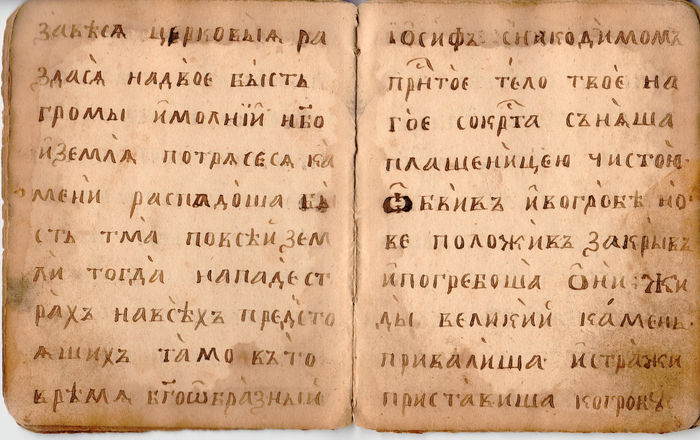 завѣсѧ церковыѧ ра
здасѧ надвое бысть
громы и҆молнїй нб҃о
и҆землѧ потрѧсесѧ ка
мени распадоша бы
сть тма повсей зем
ли тогда нападе ст
рахъ навсѣхъ предсто
ѧщихъ тамо въто
времѧ бг҃оѡбразный
іѡсифъ сникодимомъ
прчⷭ҇тое тѣло твое на
гое сокрⷭ҇та снѧша
плащеницею чистою
ѡбвивъ и҆вогробѣ но
ве положивъ закрывъ
и҆погребоша ѻ҆ни жи
ды великий камень
привалища и҆стражи
приставиша когробꙋ